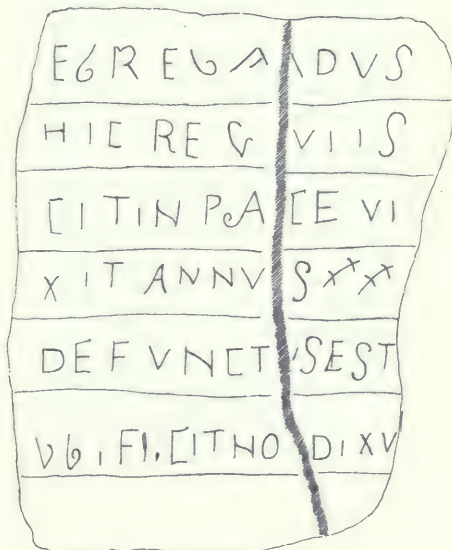 EGREGA\DVS
HIC REQ VIIS
CITIN PACE VI
XIT ANNVS XXX
DEFVNCTISEST
VbIFI.CITNO DIXV